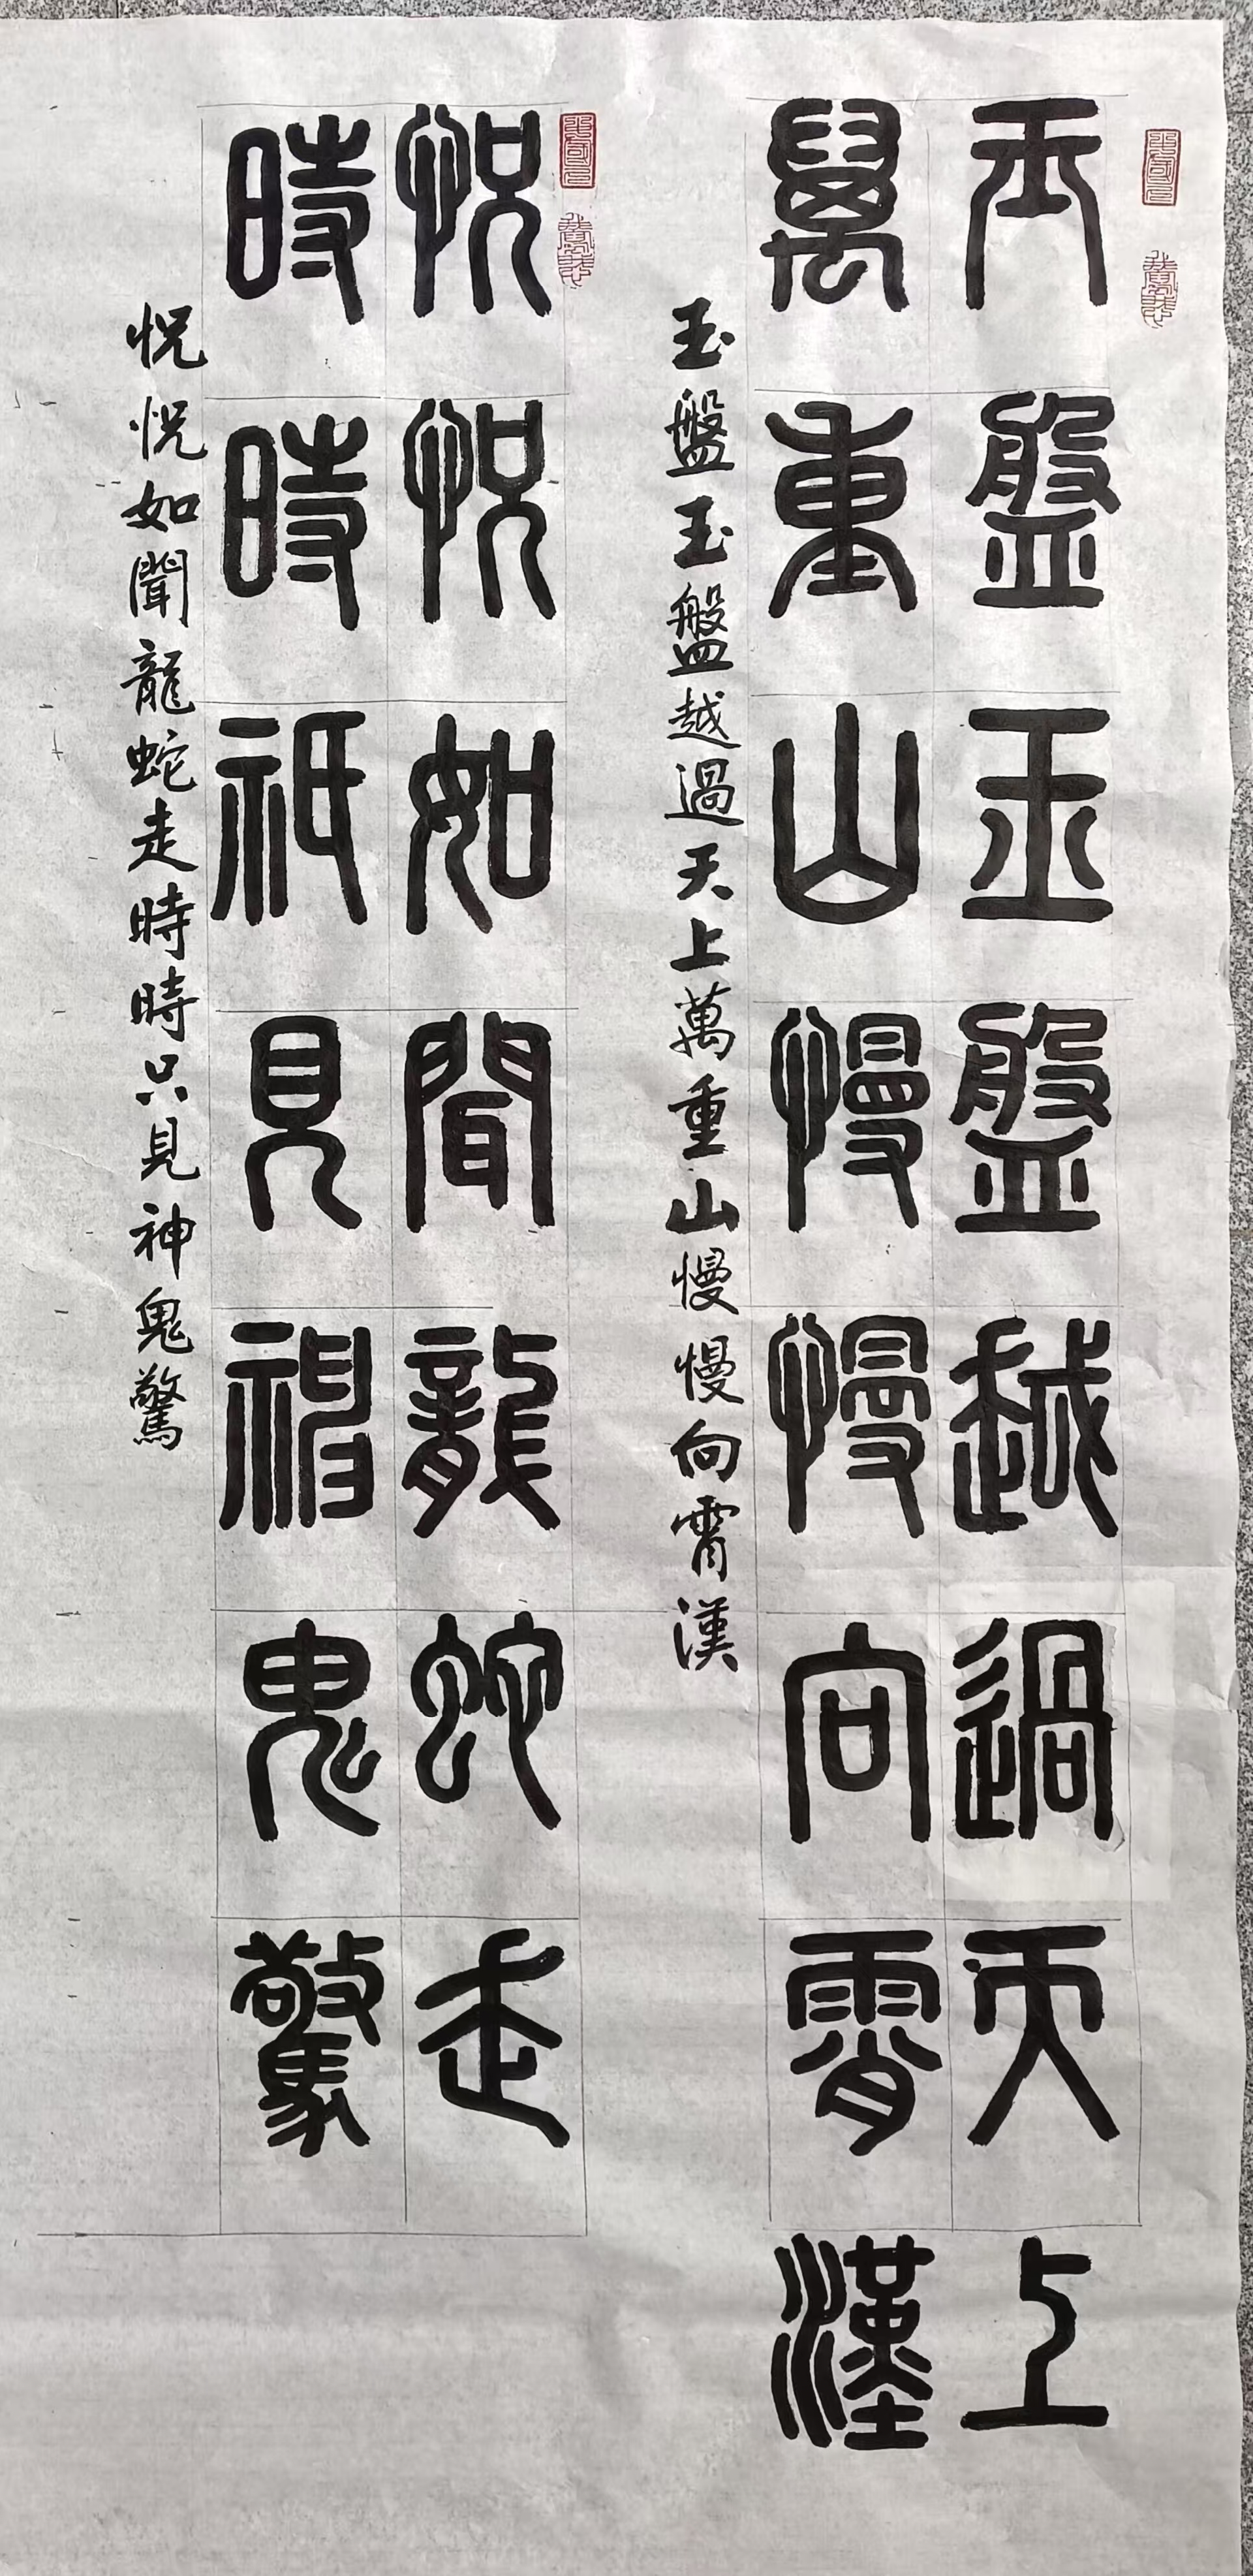 玉盤玉盤越過天上
萬重山慢慢向霄漢
玉盤玉盤越過天上萬重山慢慢向霄漢
怳怳如聞龍蛇走
時時祇見神鬼驚
怳怳如聞龍蛇走時時只見神鬼驚